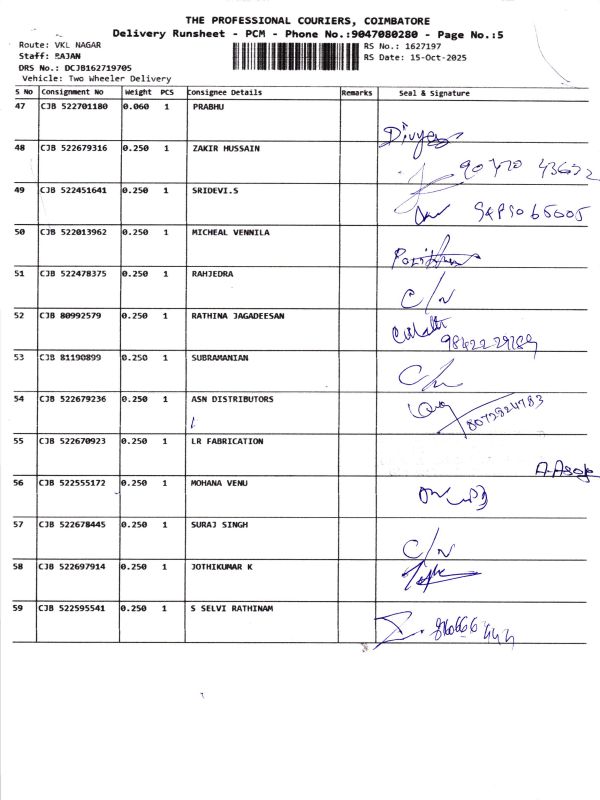 THE PROFESSIONAL COURIERS, COIMBATORE
Delivery Runsheet - PCM - Phone No.:9047080280 - Page No.:5
Route: VKL NAGAR RS No.: 1627197
Staff: RAJAN RS Date: 15-Oct-2025
DRS No.: DCJB162719705
Vehicle: Two Wheeler Delivery
S No Consignment No Weight PCS Consignee Details Remarks Seal & Signature
47 CJB 522701180 0.060 1 PRABHU
48 CJB 522679316 0.250 1 ZAKIR HUSSAIN
49 CJB 522451641 0.250 1 SRIDEVI.S
50 CJB 522013962 0.250 1 MICHEAL VENNILA
51 CJB 522478375 0.250 1 RAHJEDRA C/N
52 CJB 80992579 0.250 1 RATHINA JAGADEESAN
53 CJB 81190899 0.250 1 SUBRAMANIAN
54 CJB 522679236 0.250 1 ASN DISTRIBUTORS 8072824783
55 CJB 522670923 0.250 1 LR FABRICATION
56 CJB 522555172 0.250 1 MOHANA VENU
57 CJB 522678445 0.250 1 SURAJ SINGH C/N
58 CJB 522697914 0.250 1 JOTHIKUMAR K
59 CJB 522595541 0.250 1 S SELVI RATHINAM